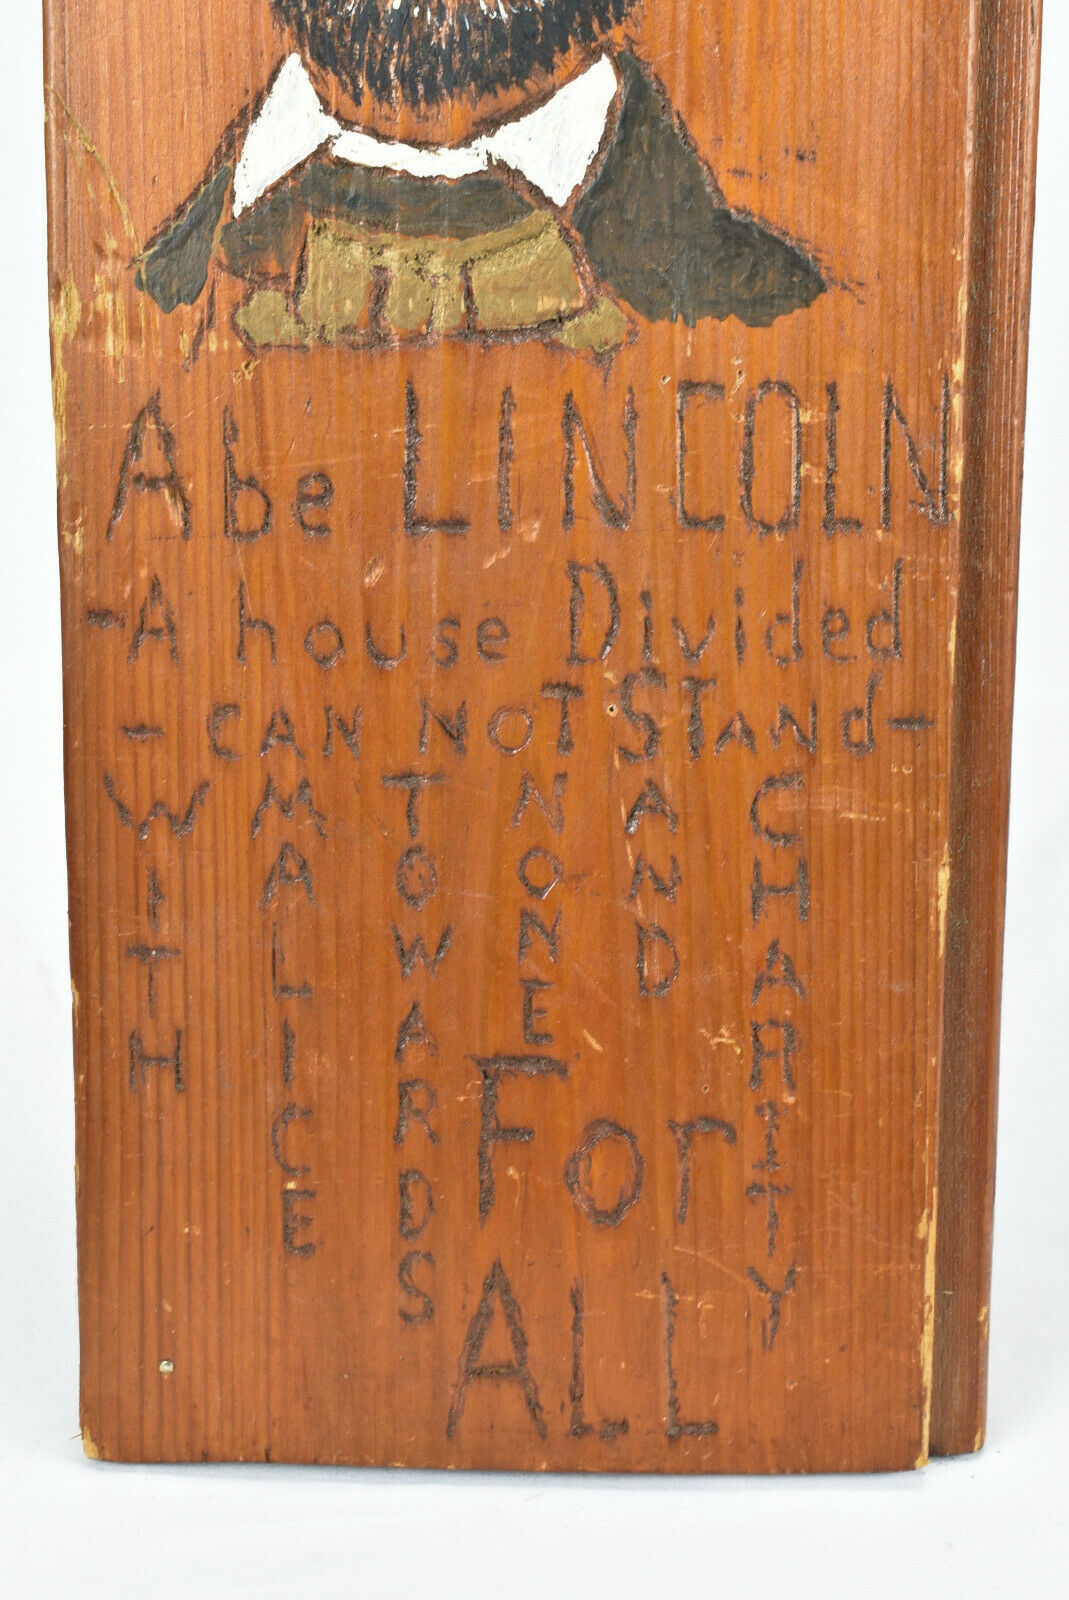 Abe LINCOLN
-A house Divided
- CAN NOT STAnd-
WITH
MALICE
TOWARDS
NONE
AND
CHARITY
For
ALL